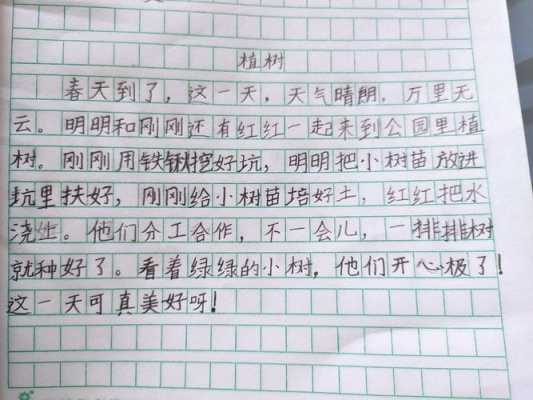 植树
春天到了，这一天，天气晴朗，万里无
云。明明和刚刚还有红红一起来到公园里植
树。刚刚用铁锹挖好坑，明明把小树苗放进
坑里扶好，刚刚给小树苗培好土，红红把水
浇上。他们分工合作，不一会儿，一排排树
就种好了。看着绿绿的小树，他们开心极了！
这一天可真美好呀！